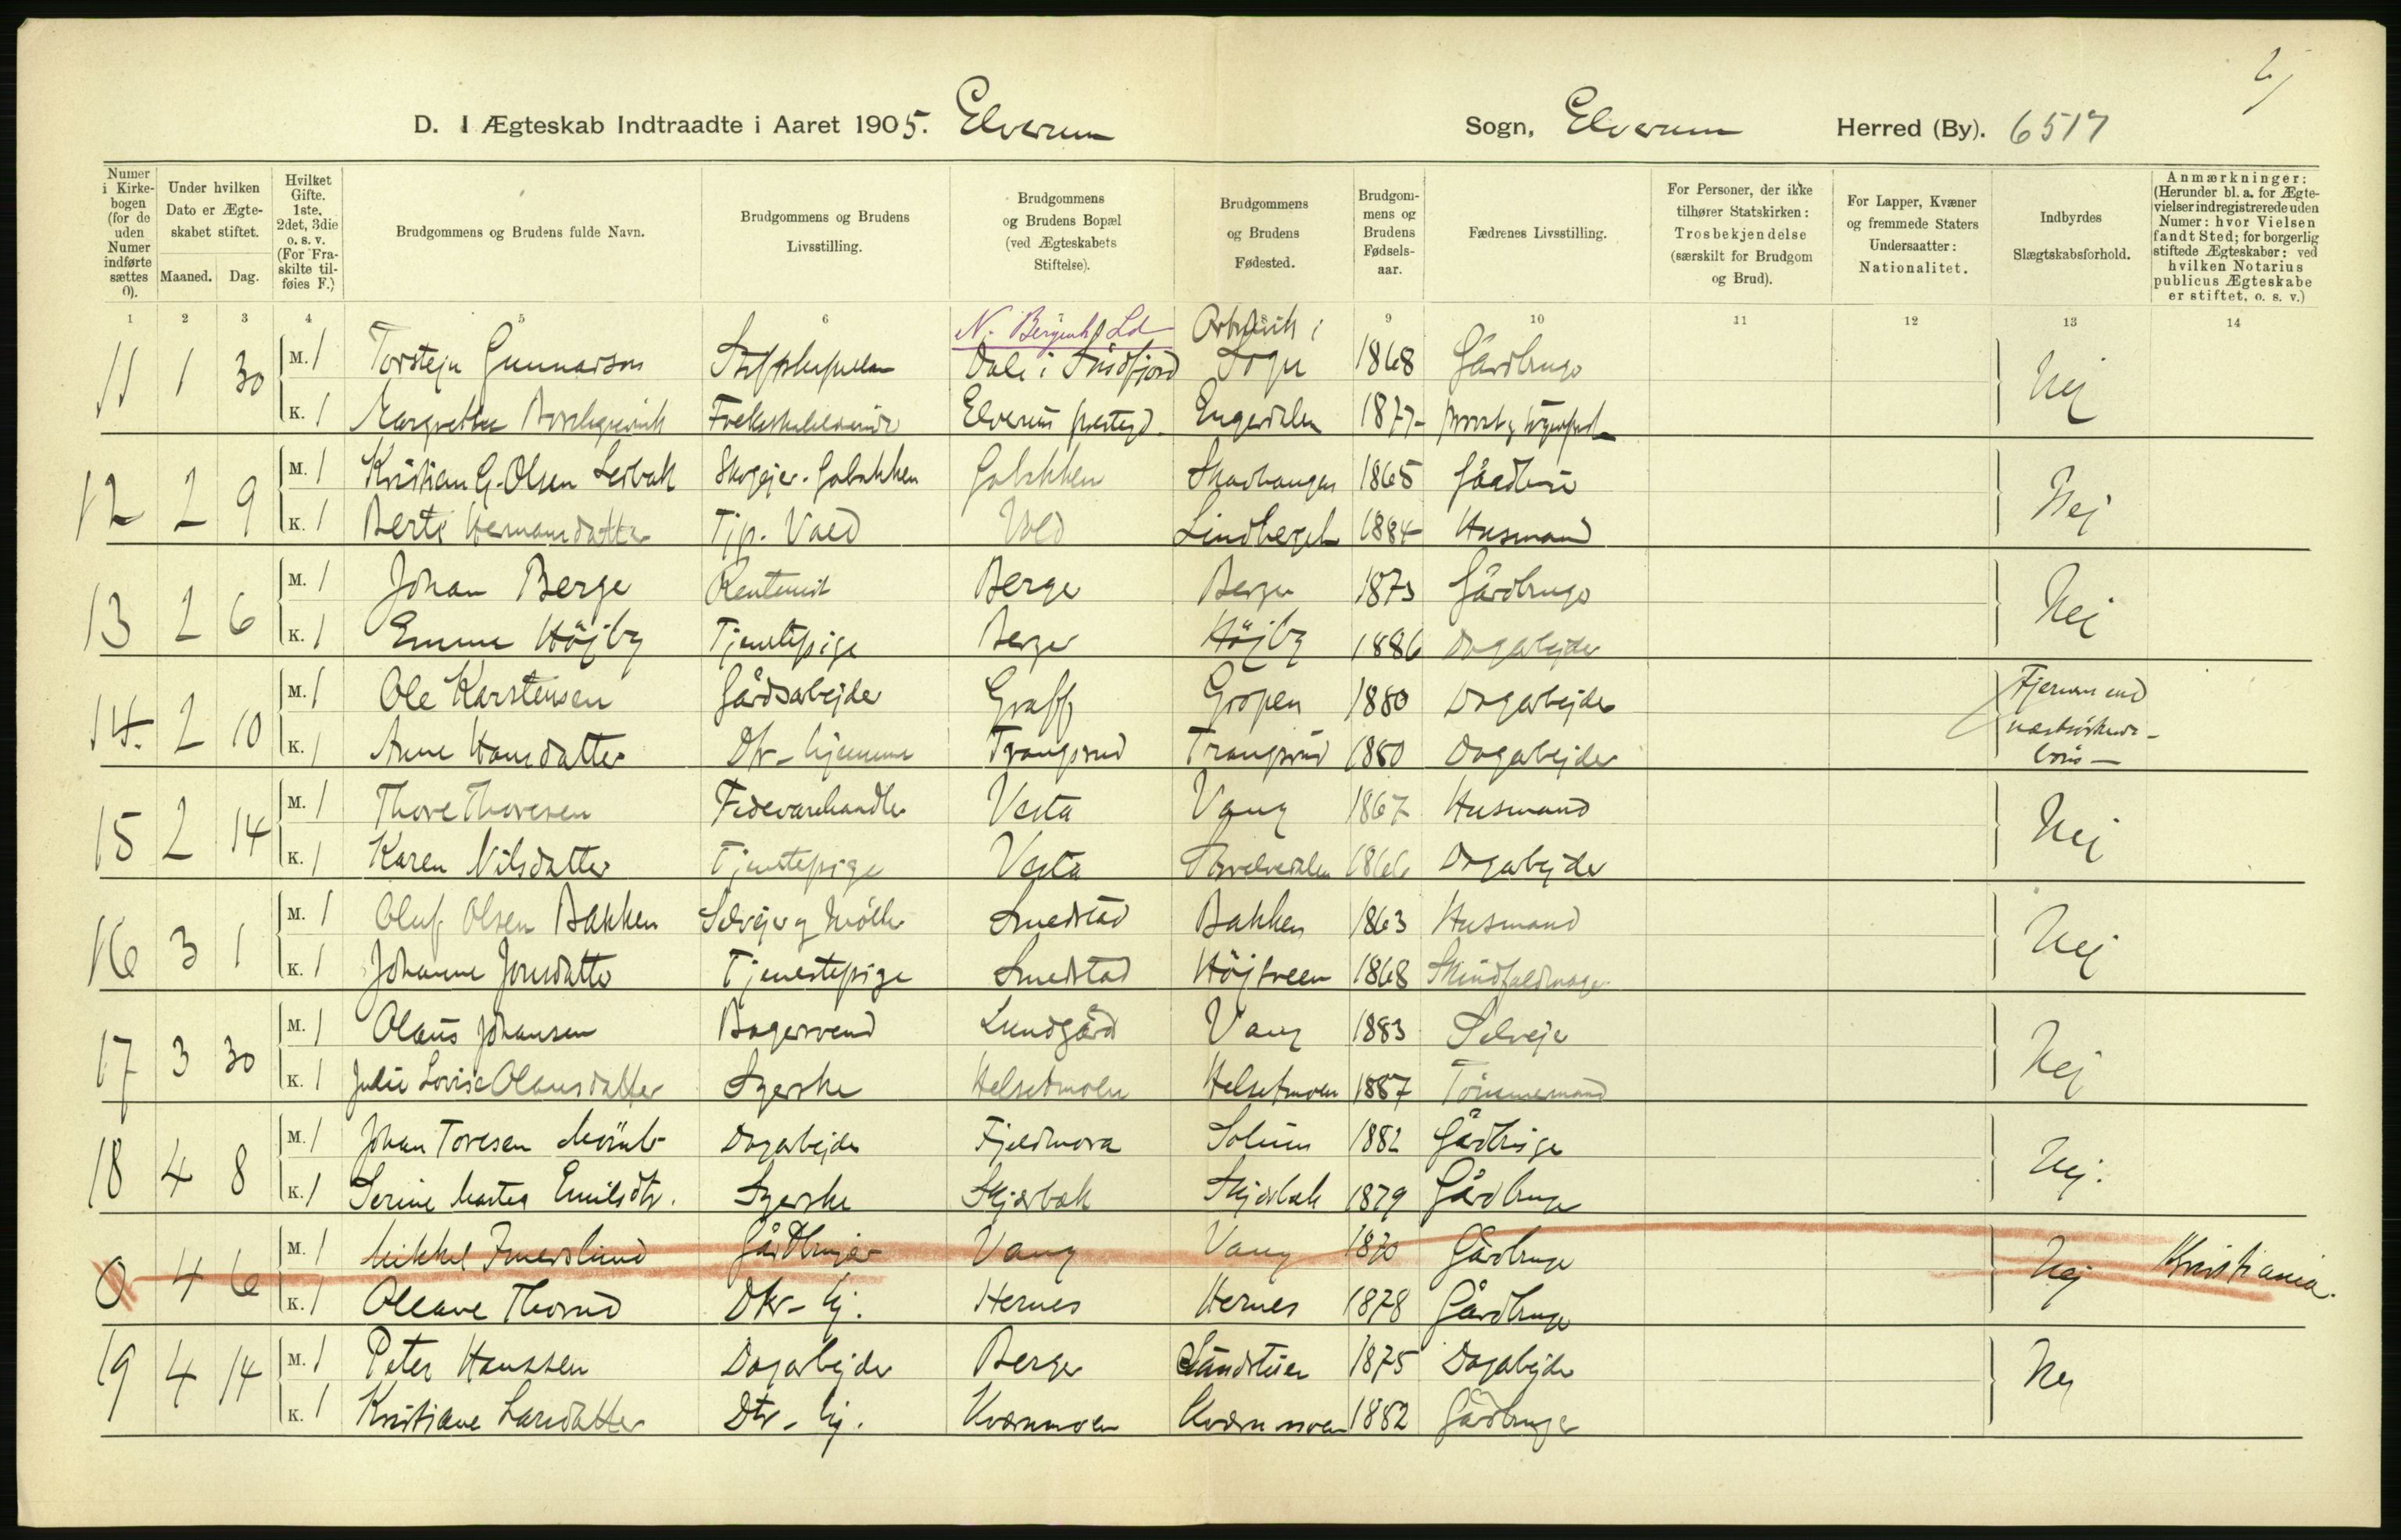 D. I Ægteskab Indtraadte i Aaret 1905. Elverum Sogn, Elverum Herred (By). 6517
Numer i Kirkebogen (for de uden Numer indførte sættes 0).
Under hvilken Dato er Ægteskabet stiftet.
Maaned. Dag.
Hvilket Gifte. 1ste, 2det, 3die o. s. v. (For Fraskilte tilføies F.)
Brudgommens og Brudens fulde Navn.
Brudgommens og Brudens Livsstilling.
Brudgommens og Brudens Bopæl (ved Ægteskabets Stiftelse).
Brudgommens og Brudens Fødested.
Brudgommens og Brudens Fødselsaar.
Fædrenes Livsstilling.
For Personer, der ikke tilhører Statskirken: Trosbekjendelse (særskilt for Brudgom og Brud).
For Lapper, Kvæner og fremmede Staters Undersaatter: Nationalitet.
Indbyrdes Slægtskabsforhold.
Anmærkninger: (Herunder bl. a. for Ægtevielser indregistrerede uden Numer: hvor Vielsen fandt Sted; for borgerlig stiftede Ægteskaber: ved hvilken Notarius publicus Ægteskabe er stiftet, o. s. v.)
1 2 3 4 5 6 7 8 9 10 11 12 13 14
N. Bergenh Ld
11 1 30 M. 1 Torstejn Gunnarson Dale i Søndfjord Sogn 1868 Gårdbruger Nej
K. 1 Margrethe Elverum prestegd. Engerdalen 1877
12 2 9 M. 1 Kristian G. Olsen Leibak Skogejer. Golakken Golakken Skavhaugen 1865 Gårdbru Nej
K. 1 Berte Hermansdatter Tjp. Vold Vold Lindberget 1884 Husmand
13 2 6 M. 1 Johan Berge Rentenist Berge Berge 1873 Gårdbruger Nej
K. 1 Emma Höjby Tjenstepige Berge Höjby 1886 Dagarbejder
14. 2 10 M. 1 Ole Karstensen Gårdsarbejder Graff Gropen 1880 Dagarbejder Fjernere end næstsöskendebörn
K. 1 Anne Hansdatter Dtr. hjemme Trangsrud Trangsrud 1880 Dagarbejder
15 2 14 M. 1 Thore Thoresen Fedevarehandler Vesta Vang 1867 Husmand Nej
K. 1 Karen Nilsdatter Tjenstepige Vesta 1866 Dagarbejder
16 3 1 M. 1 Oluf Olsen Bakken Selvejer og Möller Smedstad Bakken 1863 Husmand Nej
K. 1 Johanne Jonsdatter Tjenestepige Smedstad Höjbreen 1868 Skindfeldmager
17 3 30 M. 1 Olaus Johansen Bagersvend Lundgård Vang 1883 Selvejer Nej
K. 1 Julie Lovise Olausdatter Syerske Helsetmoen Helsetmoen 1887 Tömmermand
18 4 8 M. 1 Johan Toresen Dagarbejder Fjeldmora Solum 1882 Gårdbruger Nej.
K. 1 Serine Martea Emilsdtr. Syerske Skjærbak Skjærbak 1879 Gårdbruger
0 4 6 M. 1 Mikkel Imerslund Gårdbruger Vang Vang 1870 Gårdbruger Nej Kristiania.
K. 1 Oleane Thorud Dtr. hj. Hernes Hernes 1878 Gårdbruger
19 4 14 M. 1 Peter Hanssen Dagarbejder Berger Sandstuen 1875 Dagarbejder Nej
K. 1 Kristiane Larsdatter Dtr. hj. Kværnmoen Kværnmoen 1882 Gårdbruger